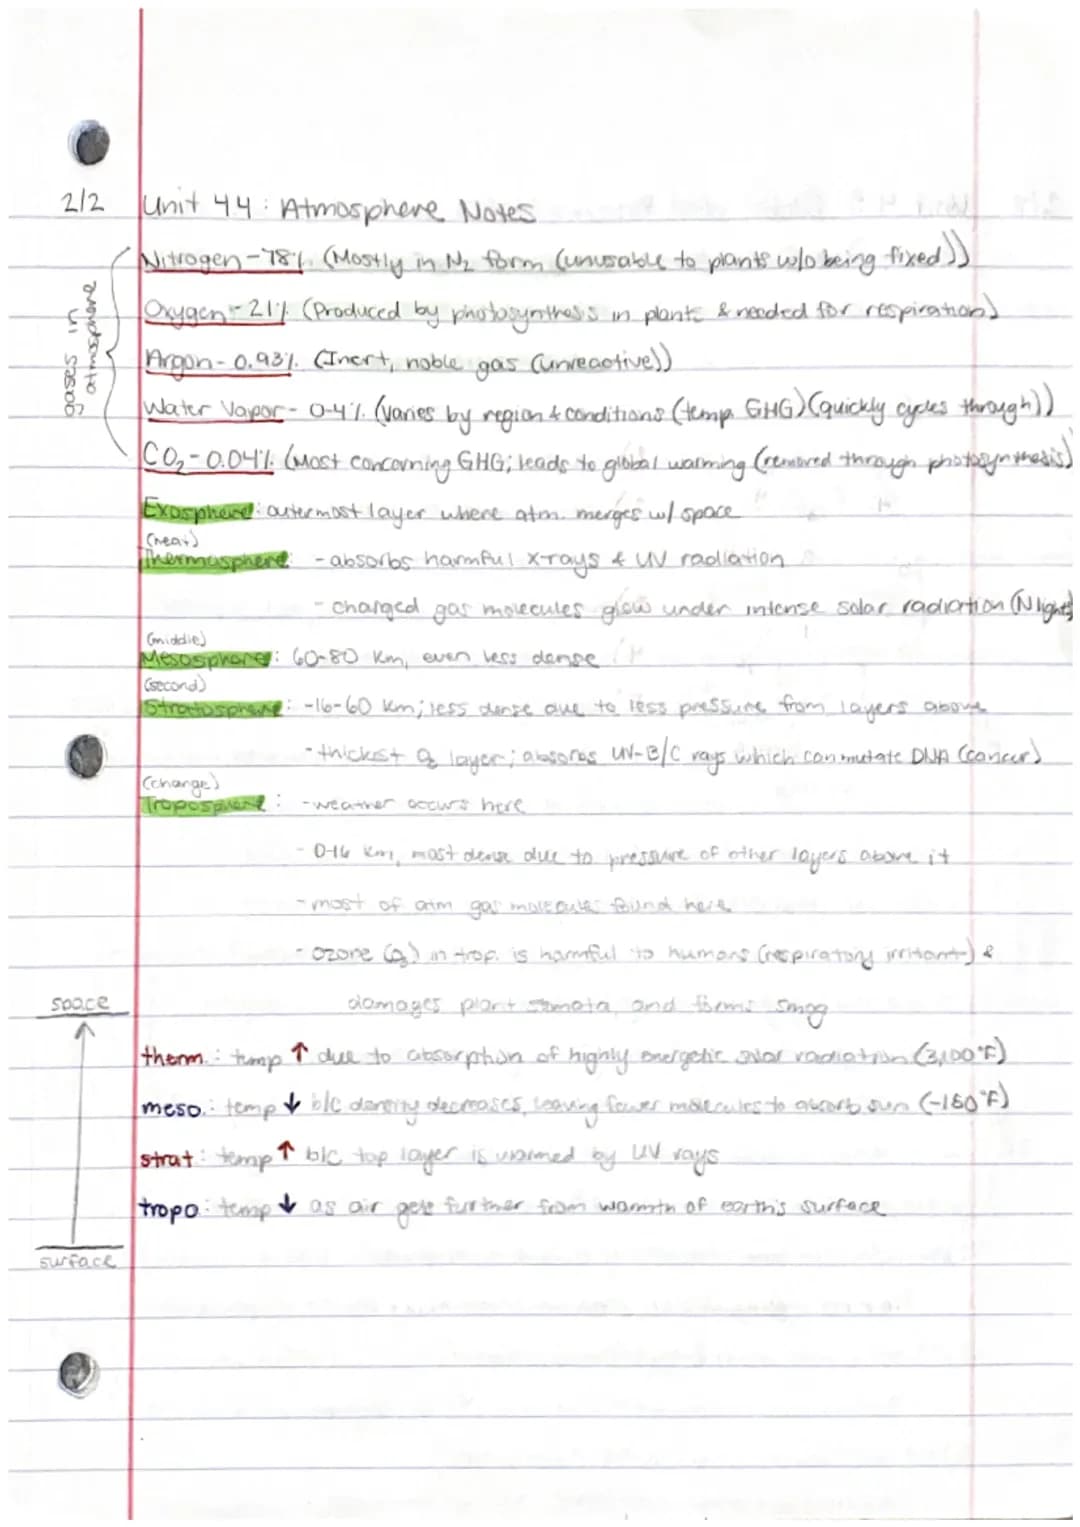 2/2 Unit 4.4: Atmosphere Notes
gases in atmosphere
Nitrogen - 78% (Mostly in N₂ form (unusable to plants w/o being fixed))
Oxygen - 21% (Produced by photosynthesis in plants & needed for respiration)
Argon - 0.93% (Inert, noble gas (unreactive))
Water Vapor - 0-4% (varies by region & conditions (temp. GHG) (quickly cycles through))
CO₂ - 0.04% (Most concerning GHG; leads to global warming (removed through photosynthesis)
Exosphere: outermost layer where atm. merges w/ space
(heat)
Thermosphere: - absorbs harmful x-rays & UV radiation
- charged gas molecules glow under intense solar radiation (N lights)
(middle)
Mesosphere: 60-80 km, even less dense
(second)
Stratosphere: -16-60 km; less dense due to less pressure from layers above
- thickest O₃ layer; absorbs UV-B/C rays which can mutate DNA (cancer)
(change)
Troposphere: - weather occurs here
- 0-16 km, most dense due to pressure of other layers above it
- most of atm gas molecules found here
- ozone (O₃) in trop. is harmful to humans (respiratory irritant) &
damages plant stomata, and forms smog
space
therm.: temp ↑ due to absorption of highly energetic solar radiation (3,100°F)
meso.: temp ↓ b/c density decreases, leaving fewer molecules to absorb sun (-150°F)
strat: temp ↑ b/c top layer is warmed by UV rays
tropo: temp ↓ as air gets further from warmth of earth's surface
surface